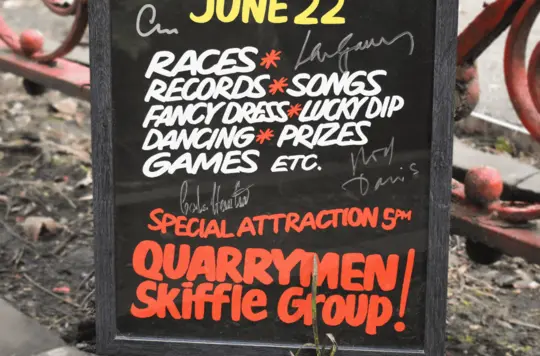 JUNE 22
RACES * 
RECORDS * SONGS
FANCY DRESS * LUCKY DIP
DANCING * PRIZES
GAMES ETC.
Rod
Davis
SPECIAL ATTRACTION 5PM
QUARRYMEN
Skiffle Group!